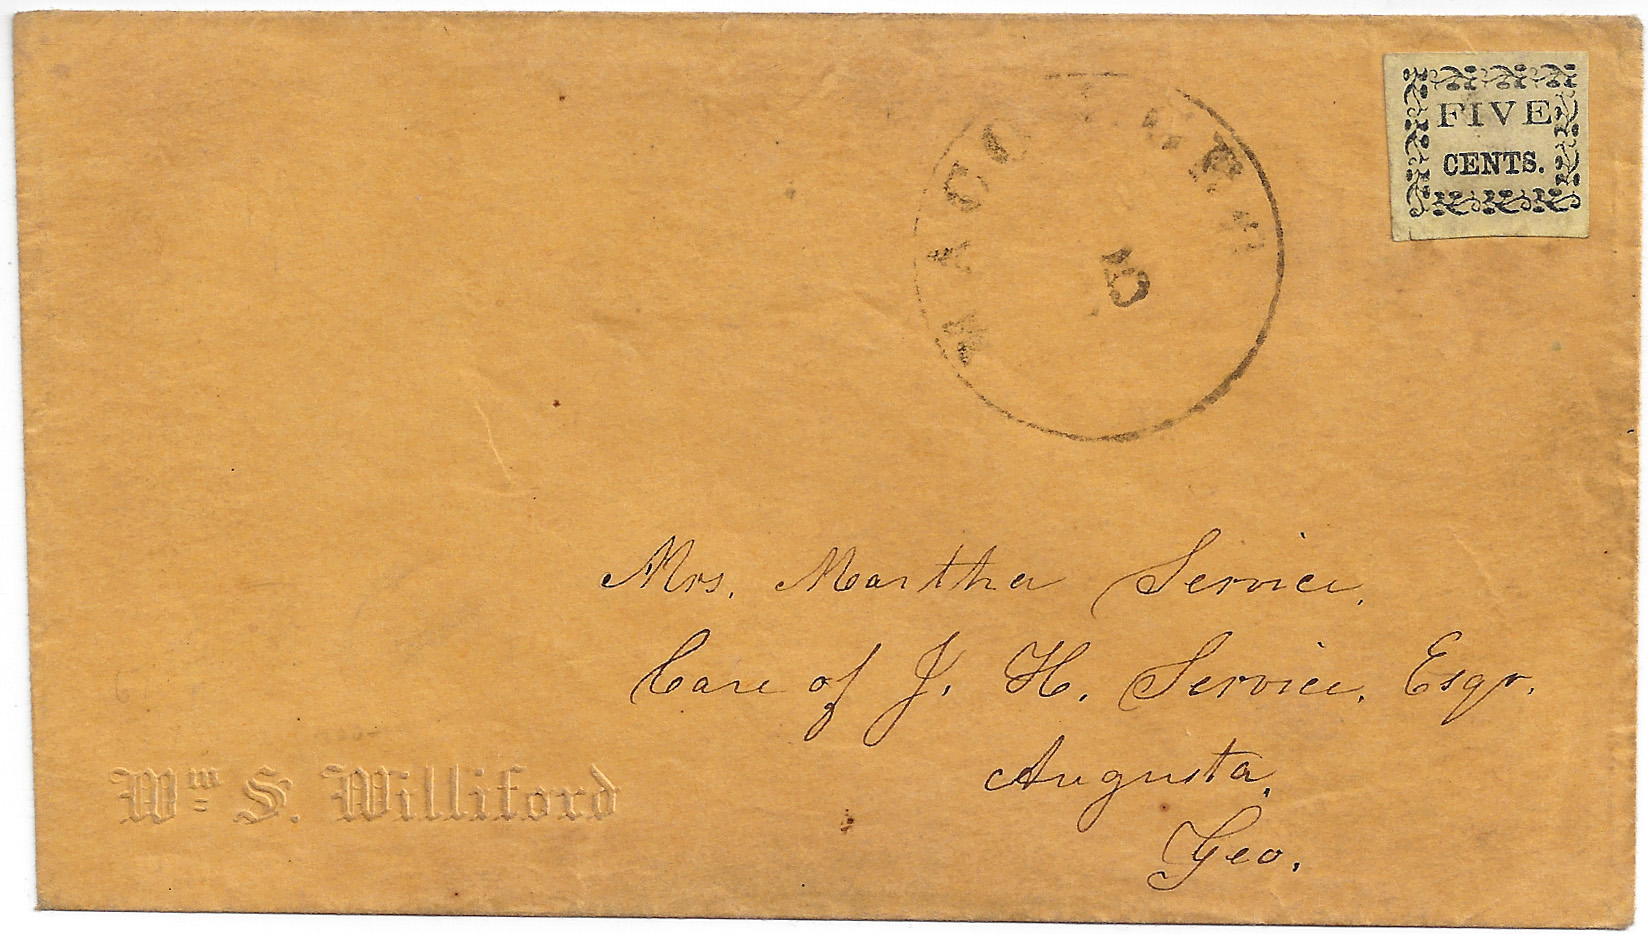 FIVE
CENTS.
MACON
5
Mrs. Martha Service,
Care of J. H. Service, Esqr.
Augusta,
Geo.
Wm S. Williford